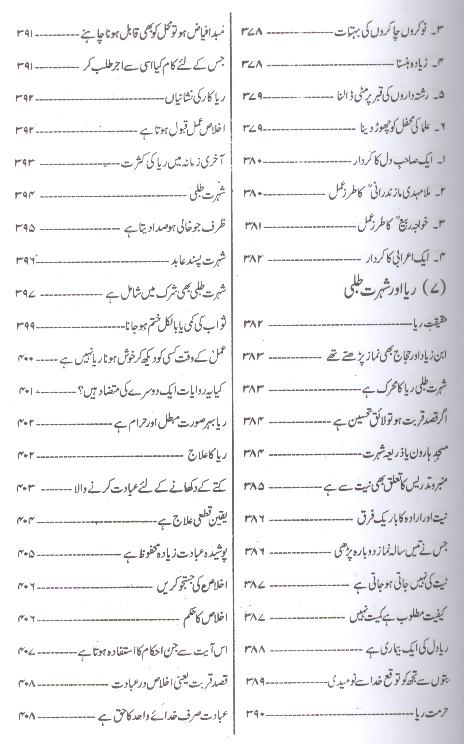 ۳۔ نوکروں چاکروں کی بہتات ۳۷۸
۴۔ زیادہ ہنسنا ۳۷۸
۵۔ رشتہ داروں کی قبر پر مٹی ڈالنا ۳۷۹
۶۔ علما کی محفل کو چھوڑ دینا ۳۷۹
۱۔ ایک صاحب دل کا کردار ۳۸۰
۲۔ ملا مہدی مازندرانیؒ کا طرز عمل ۳۸۰
۳۔ خواجہ ربیعؒ کا طرز عمل ۳۸۱
۴۔ ایک اعرابی کا کردار ۳۸۲
(۷) ریا اور شہرت طلبی
حقیقت ریا ۳۸۲
ابن زیاد اور حجاج بھی نماز پڑھتے تھے ۳۸۳
شہرت طلبی ریا کا محرک ہے ۳۸۳
اگر قصد قربت ہو تو لائق تحسین ہے ۳۸۴
مسجد ہارون یا ذریعہ شہرت ۳۸۴
منبر و تدریس کا تعلق بھی نیت سے ہے ۳۸۵
نیت اور ارادہ کا باریک فرق ۳۸۶
جس نے تیس سالہ نماز دوبارہ پڑھی ۳۸۶
نیت کی نہیں جاتی ہو جاتی ہے ۳۸۷
کیفیت مطلوب ہے کمیت نہیں ۳۸۷
ریا دل کی ایک بیماری ہے ۳۸۸
بتوں سے تجھ کو توقع خدا سے نومیدی ۳۸۹
حرمت ریا ۳۹۰
مبدا فیاض ہو تو محل کو بھی قابل ہونا چاہئے ۳۹۱
جس کے لئے کام کیا اسی سے اجر طلب کر ۳۹۱
ریا کار کی نشانیاں ۳۹۲
اخلاص عمل قبول ہوتا ہے ۳۹۲
آخری زمانہ میں ریا کی کثرت ۳۹۳
شہرت طلبی ۳۹۴
ظرف جو خالی ہو صدا دیتا ہے ۳۹۵
شہرت پسند عابد ۳۹۶
شہرت طلبی بھی شرک میں شامل ہے ۳۹۷
ثواب کی کمی یا بالکل ختم ہو جانا ۳۹۹
عمل کے وقت کسی کو دیکھ کر خوش ہونا ریا نہیں ہے ۴۰۰
کیا یہ روایات ایک دوسرے کی متضاد ہیں؟ ۴۰۱
ریا بہر صورت مبطل اور حرام ہے ۴۰۲
ریا کا علاج ۴۰۲
کتے کے دکھانے کے لئے عبادت کرنے والا ۴۰۳
یقین قطعی علاج ہے ۴۰۴
پوشیدہ عبادت زیادہ محفوظ ہے ۴۰۵
اخلاص کی جستجو کریں ۴۰۶
اخلاص کا حکم ۴۰۶
اس آیت سے جن احکام کا استفادہ ہوتا ہے ۴۰۷
قصد قربت یعنی اخلاص در عبادت ۴۰۸
عبادت صرف خدائے واحد کا حق ہے ۴۰۸